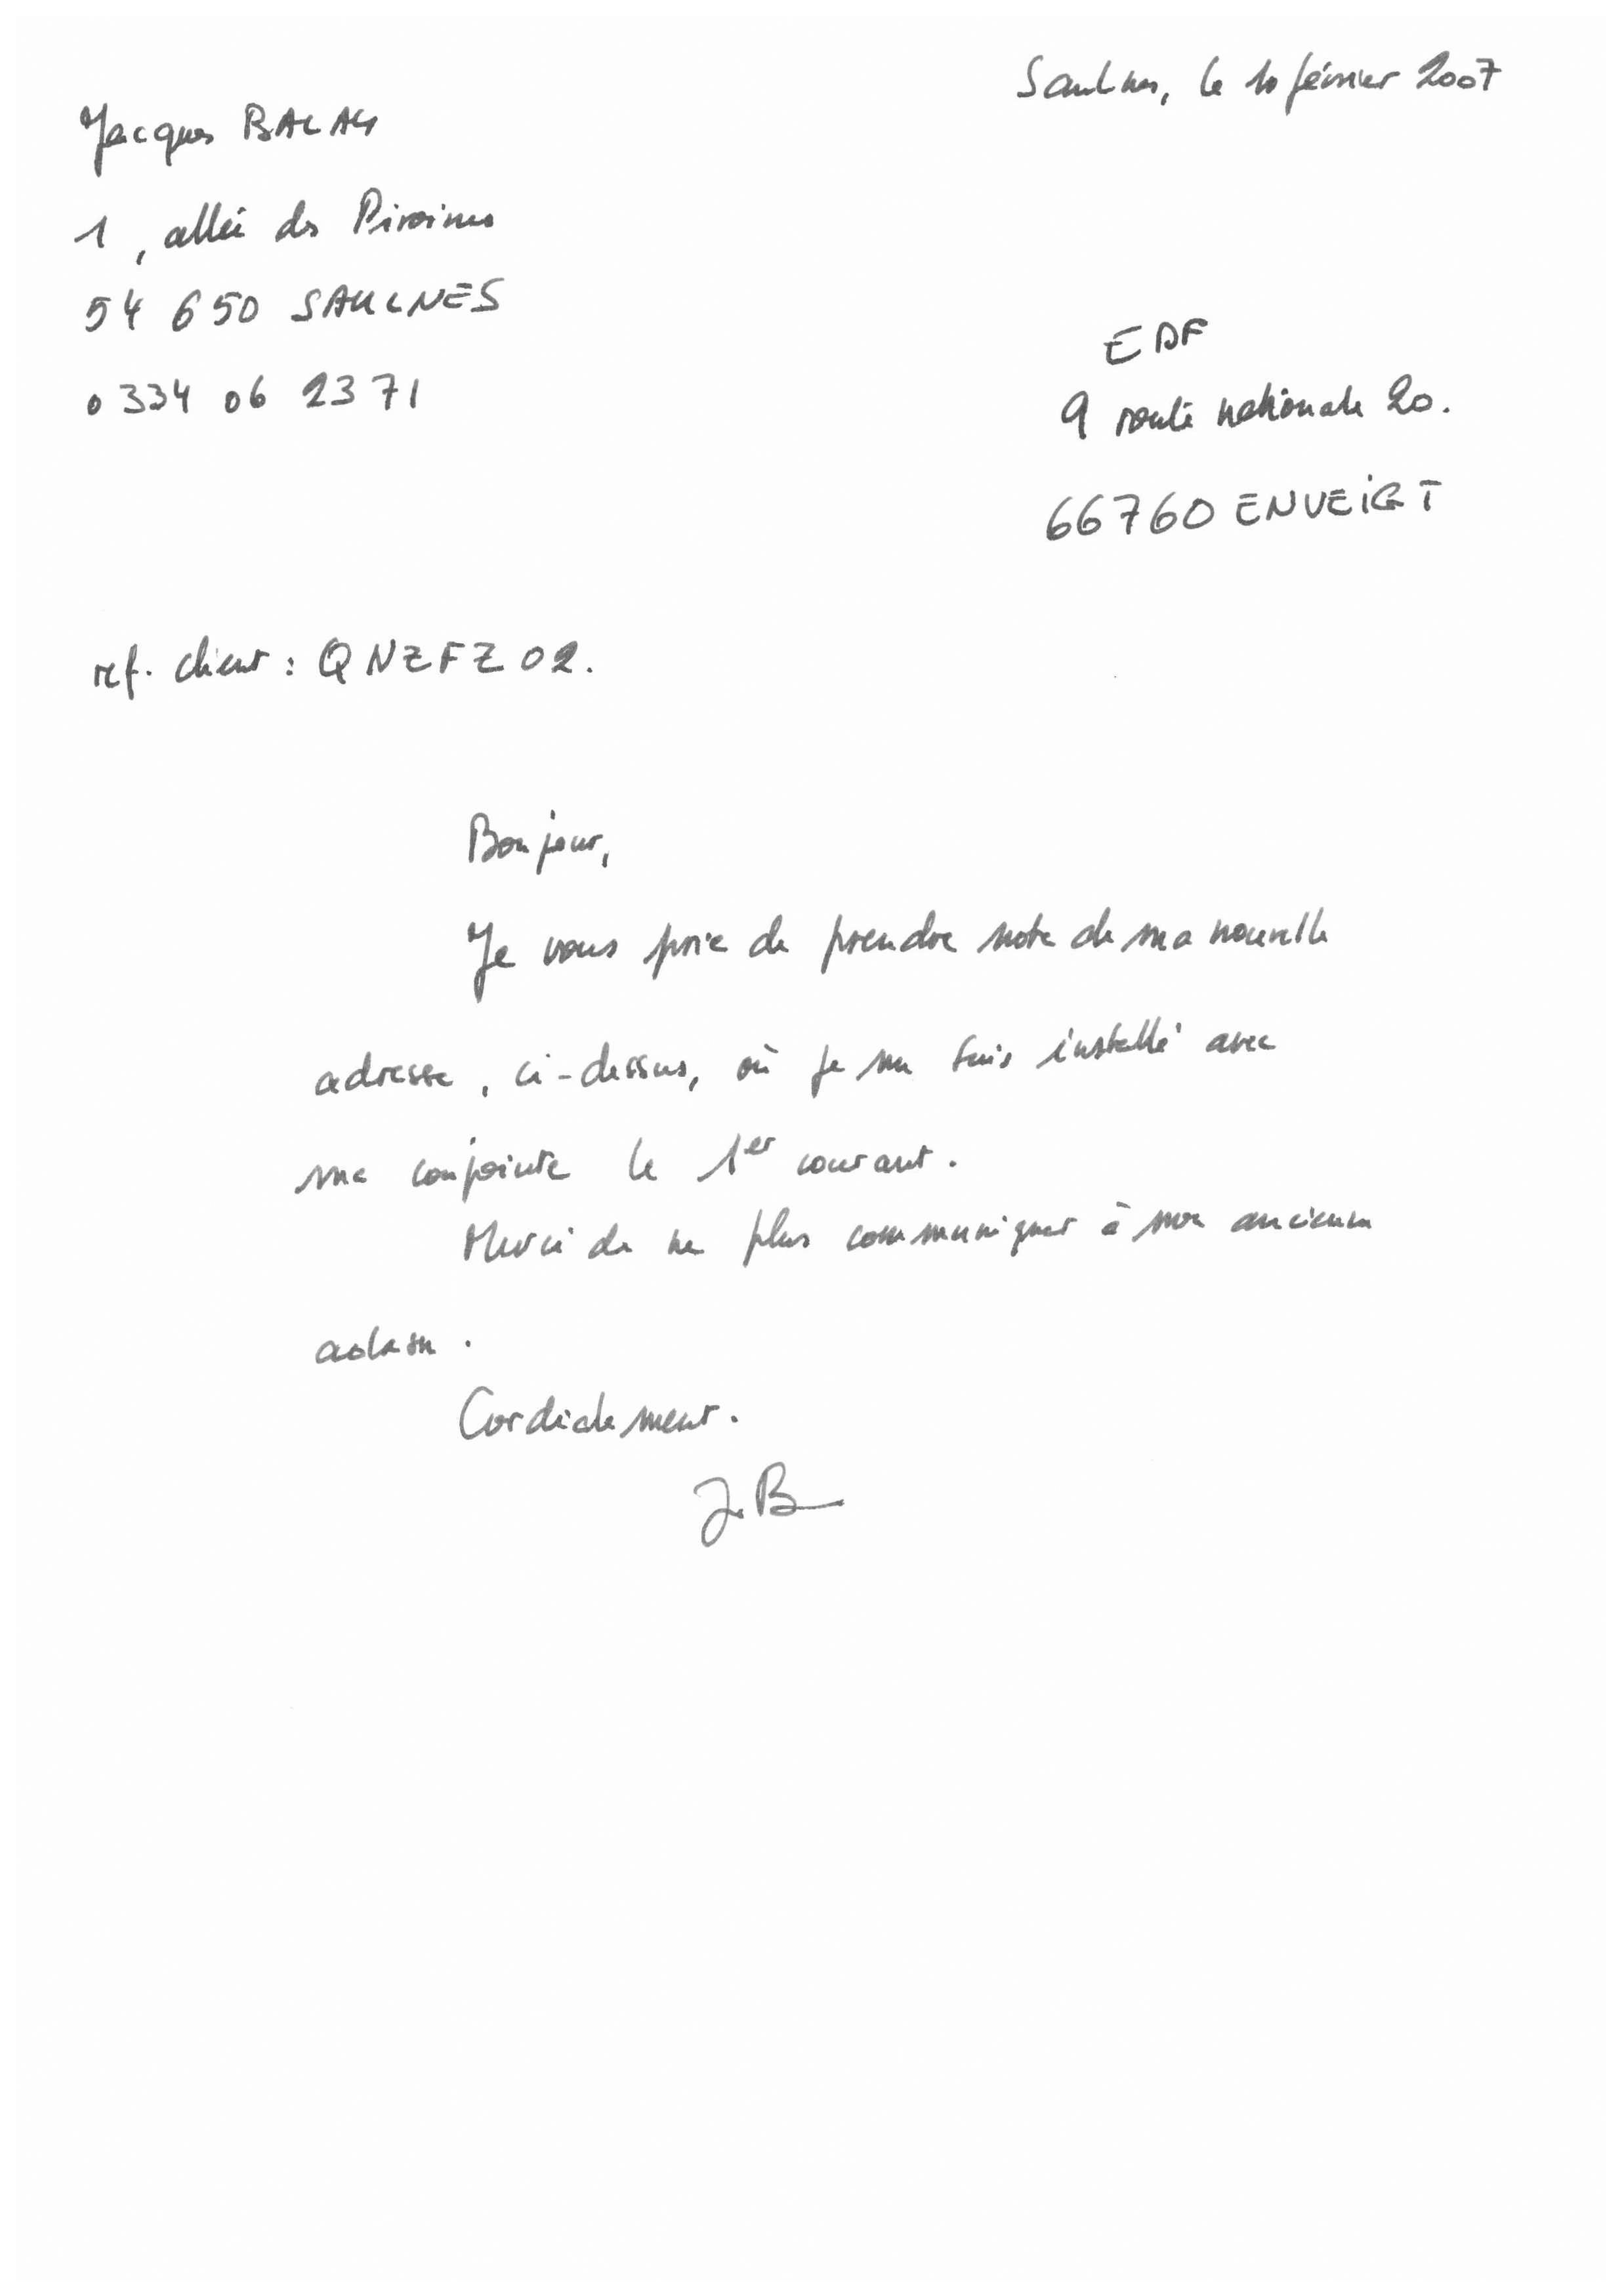 Saulnes, le 10 février 2007
Jacques BALAY
1, allée des Pivoines
54 650 SAULNES
0334 06 2371
EDF
9 route nationale 20.
66760 ENVEIGT
ref. client : QNZFZ02.
Bonjour,
Je vous prie de prendre note de ma nouvelle
adresse, ci-dessus, où je me suis installé avec
ma conjointe le 1er courant.
Merci de ne plus communiquer à mon ancienne
adresse.
Cordialement.
J.B